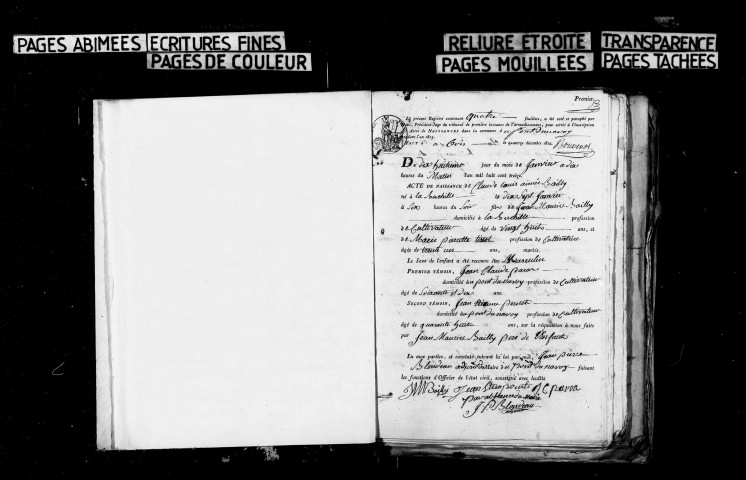 PAGES ABIMEES
ECRITURES FINES
PAGES DE COULEUR
RELIURE ETROITE
PAGES MOUILLEES
TRANSPARENCE
PAGES TACHEES
Premier.
Le présent Registre contenant quatre feuillets, a été coté et paraphé par
Président-Juge du tribunal de première instance de l'arrondissement, pour servir à l'inscription
Actes de NAISSANCES dans la commune d
pendant l'an 1813.
FAIT à le quatorze décembre 1812.
Du dix huitième jour du mois de janvier à dix
heures du Matin l'an mil huit cent treize.
ACTE DE NAISSANCE de Claude Louis aimée Bailly
né à la le dix sept janvier
à six heures du soir fils de Jean Maurice Bailly
domicilié à la profession
de Cultivateur âgé de vingt huit ans, et
de Marie pierrette profession de Cultivatrice
âgée de trente un ans, mariés.
Le Sexe de l'enfant a été reconnu être Masculin
PREMIER TÉMOIN, Jean Claude pavon
domicilié au pont du navoy profession de Cultivateur
âgé de soixante et dix ans.
SECOND TÉMOIN, Jean
domicilié au pont du navoy profession de Cultivateur
âgé de quarante huit ans, sur la réquisition à nous faite
par Jean Maurice Bailly père de l'enfant
Lu aux parties, et constaté suivant la loi par moi, Jean pierre
Blondeau adjoint du Maire de pont du navoy faisant
les fonctions d'Officier de l'état civil, soussigné avec lesdits
Bailly J C pavon
J P Blondeau